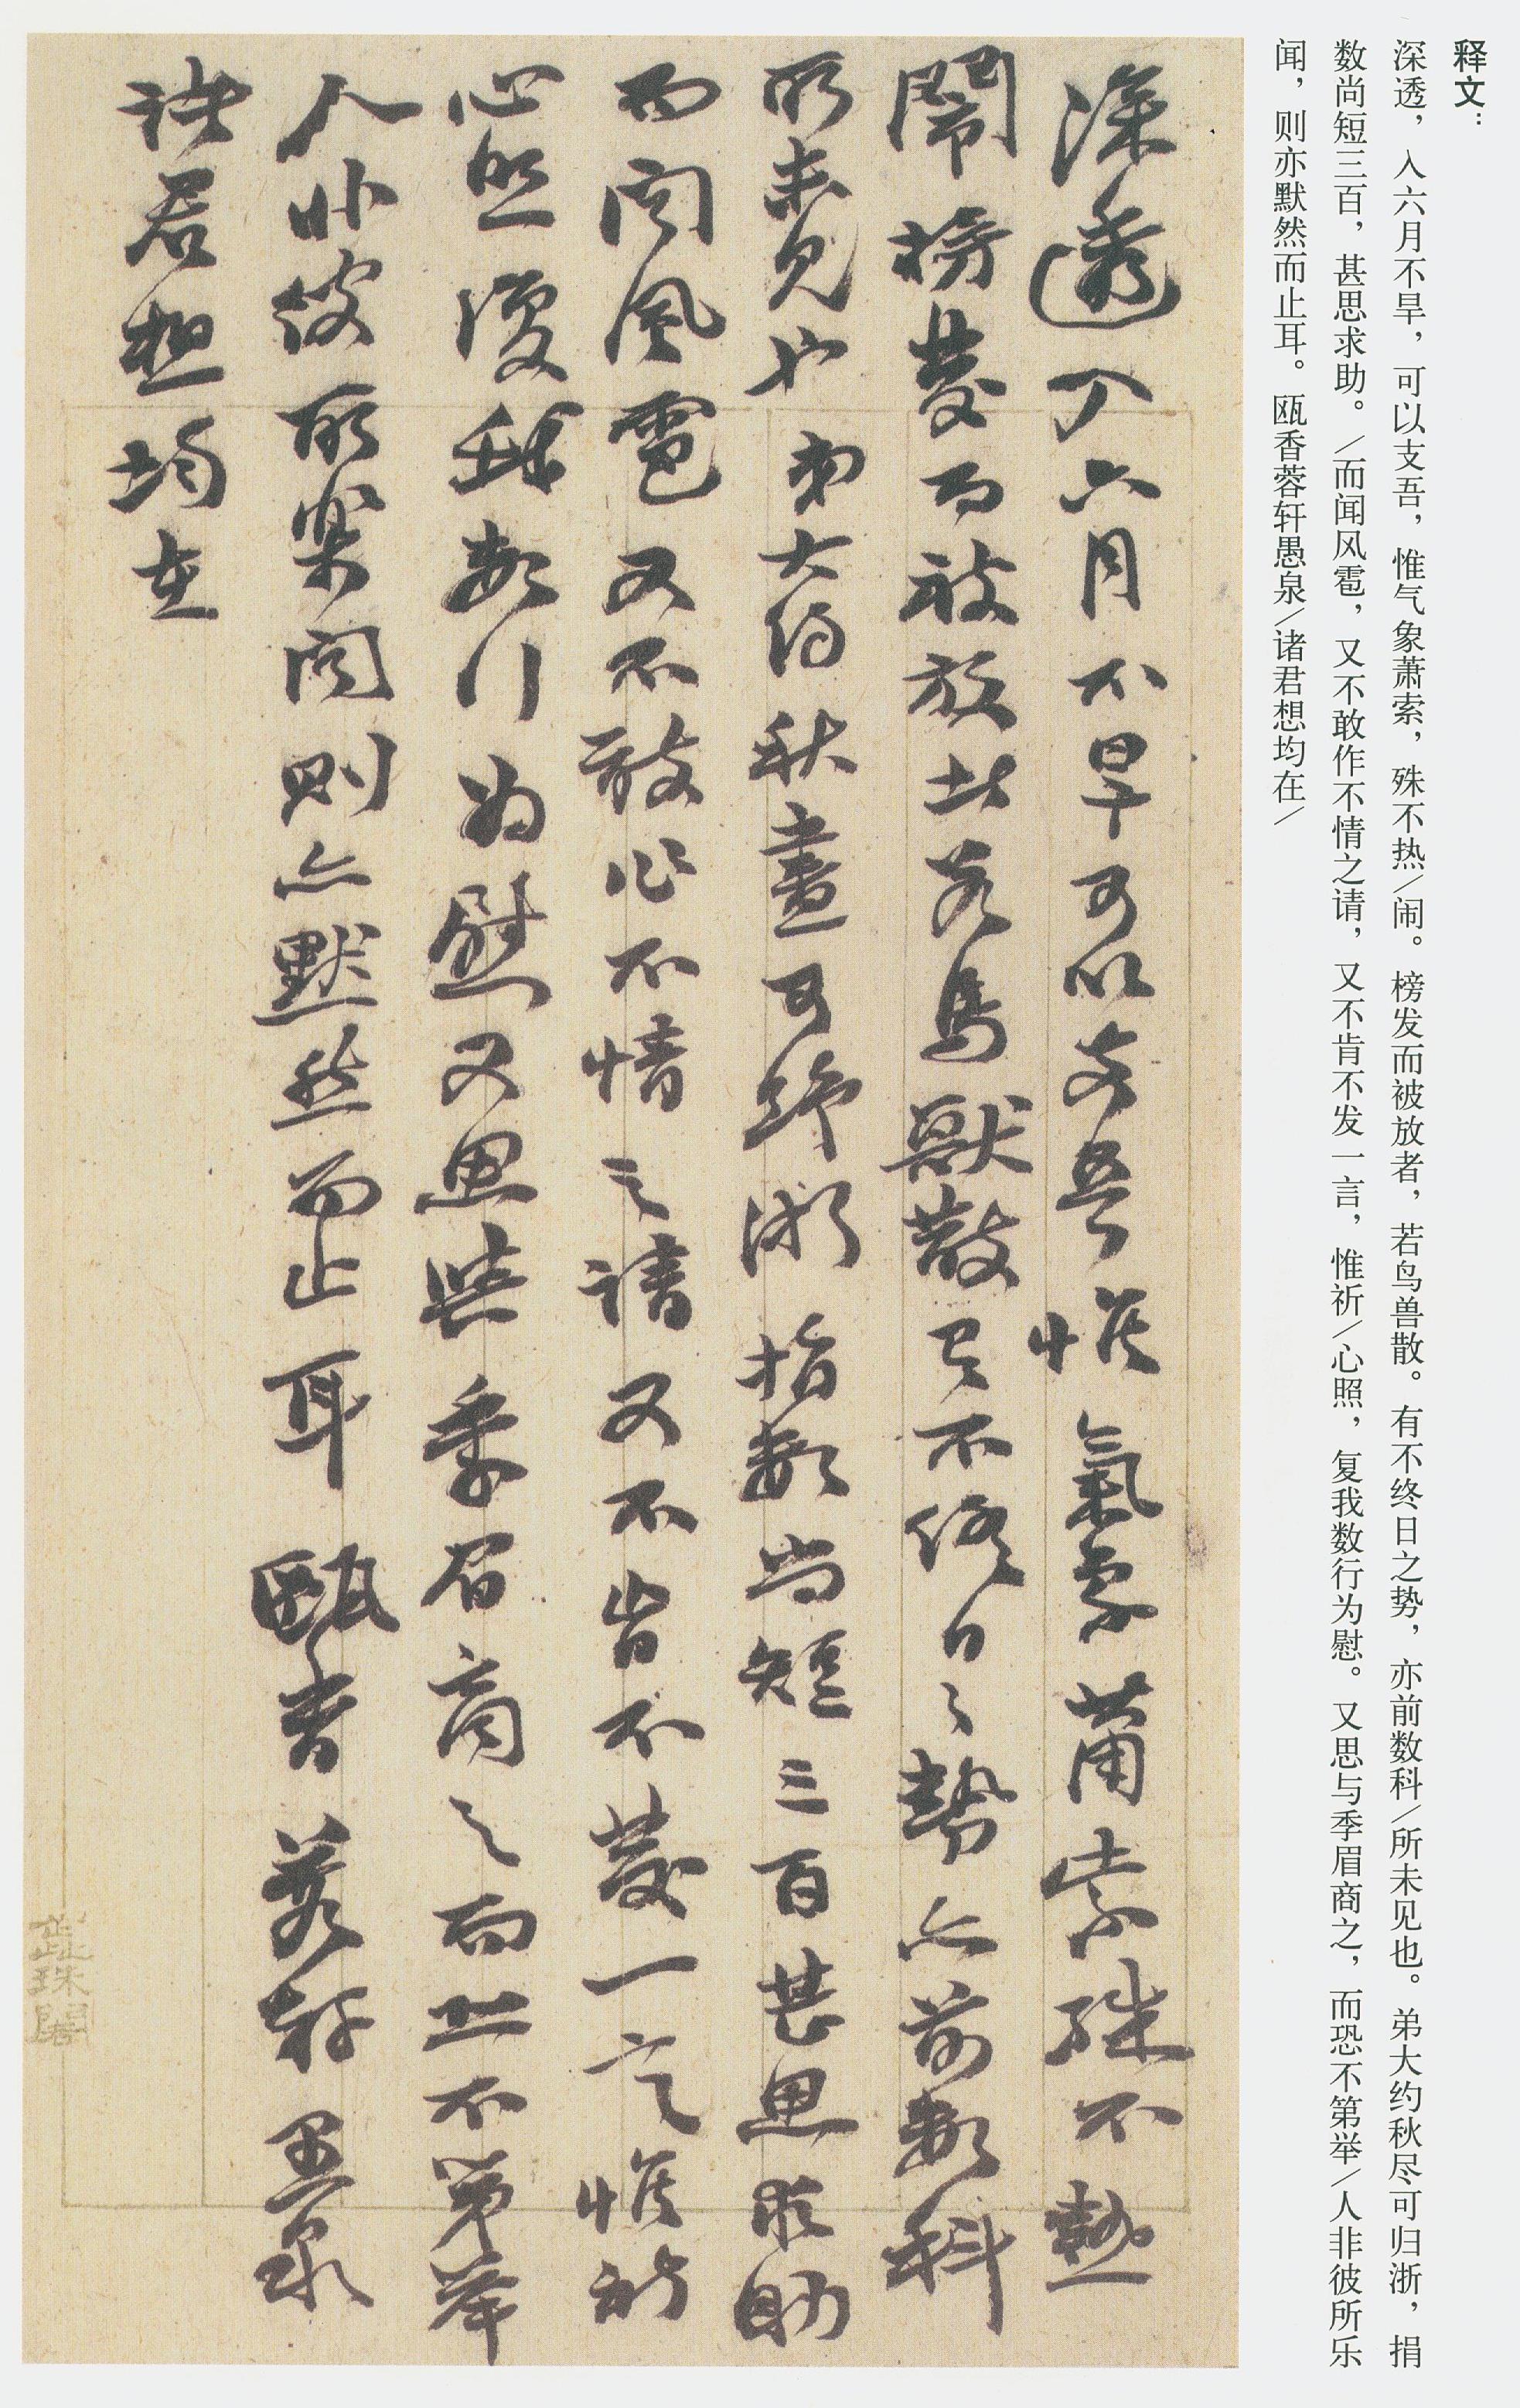 释文：
深透，入六月不旱，可以支吾，惟气象萧索，殊不热／闹。榜发而被放者，若鸟兽散。有不终日之势，亦前数科／所未见也。弟大约秋尽可归浙，捐
数尚短三百，甚思求助。／而闻风雹，又不敢作不情之请，又不肯不发一言，惟祈／心照，复我数行为慰。又思与季眉商之，而恐不第举／人非彼所乐
闻，则亦默然而止耳。瓯香蓉轩愚泉／诸君想均在／
深透入六月不旱可以支吾惟氣象蕭索殊不熱
鬧榜發而被放者若鳥獸散有不終日之勢亦前數科
所未見也弟大約秋盡可歸浙捐數尚短三百甚思求助
而聞風雹又不敢作不情之請又不肯不發一言惟祈
心照復我數行為慰又思與季眉商之而恐不第舉
人非彼所樂聞則亦默然而止耳甌香蓉軒愚泉
諸君想均在